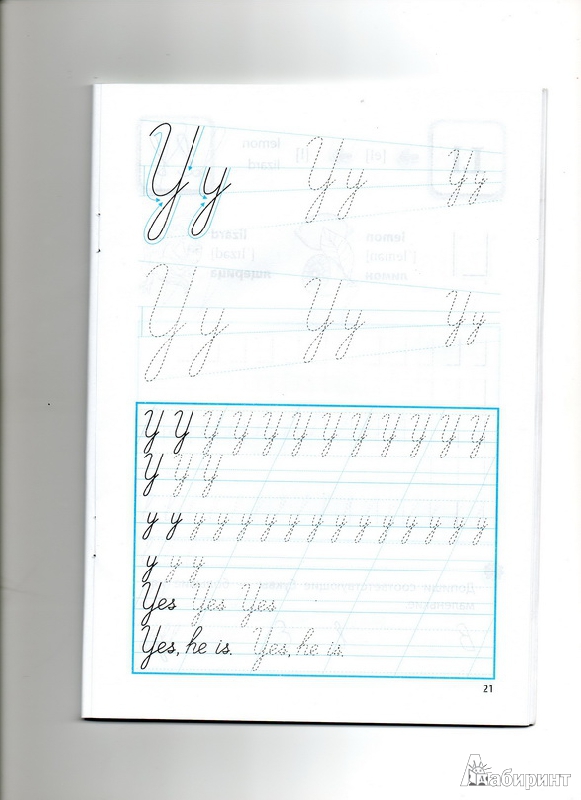 Y y Y y Y y
Y y Y y Y y
Y Y Y Y Y Y Y Y Y Y Y Y
Y Y Y
y y y y y y y y y y y y y y y
y y y
Yes Yes Yes
Yes, he is. Yes, he is.
21
Лабиринт